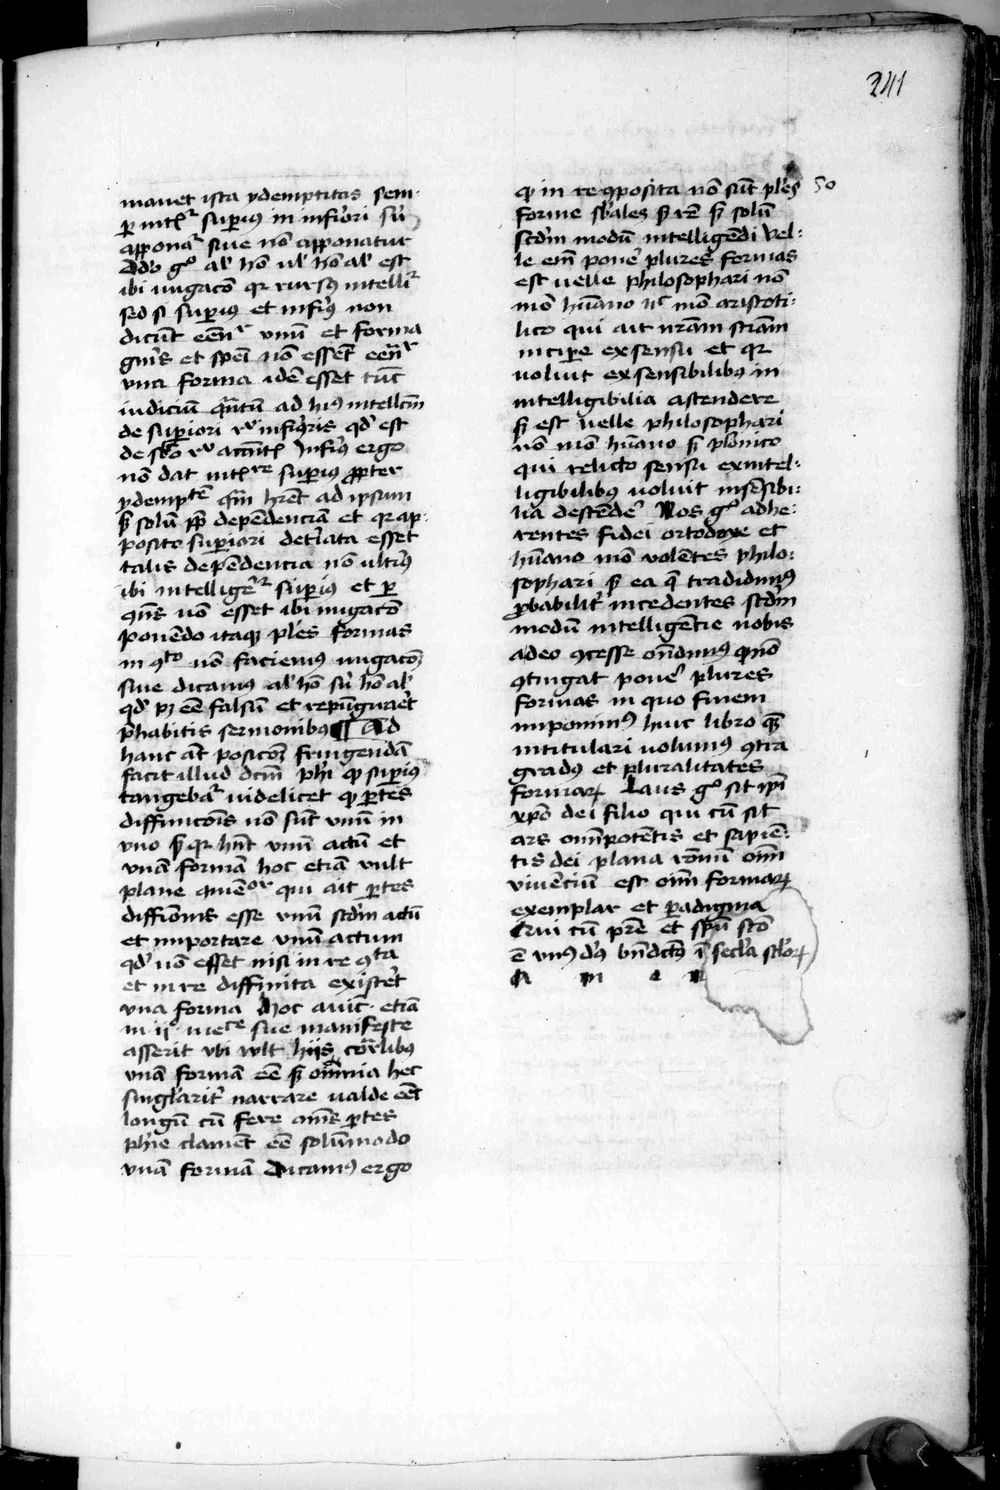 241
manet ista ydemptitas sem-
per intelr superius in inferiori sū
apponar siue non apponatur
go al hō ul hō al est
ibi nugacō qr rursus intellr
sed si superius et inferius non
dicūt eēnr vnū et forma
gnis et spēi nō essēt eēnr
vna forma idē esset tūc
iudiciū qūtū ad hius intellcm
de superiori inferioris qd est
de accntis Inferius ergo
nō dat superius propter
ydemptē hrēt ad ipsum
sȝ solū pp dependenciā et qr ap-
posito superiori detlata esset
talis dependentia nō ulterius
ibi intelliger superius et per
qns nō esset ibi nugacō
ponēdo itaqȝ ples formas
in 9to nō faciemus nugacōȝ
siue dicamus al hō sū hō al
qd pȝ eē falsū et repūgnaēt
phabitis sermonibus ¶ Ad
hanc āt posicōȝ fringendā
facit illud dcm phi qp superius
tangebar uidelicet qp ptes
diffincōis nō sūt vnū in
vno sȝ qr hnt vnū actū et
vnā formā hoc etiā vult
plane qui ait ptes
diffiōnis esse vnū scdm actū
et importare vnū actum
qd nō esset nisi in re 9ta
et in re diffinita existēt
vna forma Hoc auic. etiā
in ii. sue manifeste
asserit vbi vult hiis corelibus
vnā formā eē sȝ omnia hec
singlariter narrare valde eēt
longū cū fere omīs ptes
phie clament eē solūmodo
vnā formā Dicamus ergo
qp in re 9posita nō sūt ples 50
forme sbales rē sȝ solū
scdm modū intelligēdi Vel-
le em ponē plures formas
est uelle philosophari nō
mō hūano nc mō aristoti-
lico qui ait nrām sciām
incipe ex sensu et qr
uoluit ex sensibilibus in
intelligibilia ascendere
sȝ est uelle philosophari
nō mō hūano sȝ plonico
qui relicto sensu ex intel-
ligibilibus uoluit in sēsibi-
lia descēdē Nos go adhe-
rentes fidei ortodoxe et
hūano mō volētes philo-
sophari sȝ ea qē tradidimus
probabilit incedentes scdm
modū intelligētie nobis
adeo 9cesse ondimus qmō
9tingat ponē plures
formas in quo finem
imponimus huic libro qȝ
intitulari uolumus 9tra
gradus et pluralitates
formarȝ Laus go sit ipi
xpō dei filio qui cū sit
ars omīpotētis et sapiē-
tis dei plana rōnū omi
viuenciū est omī formarȝ
exemplar et paradigma
Cui cū prē et spū scō
ē vnus dus bndictus ī secla sclorȝ
A m e n